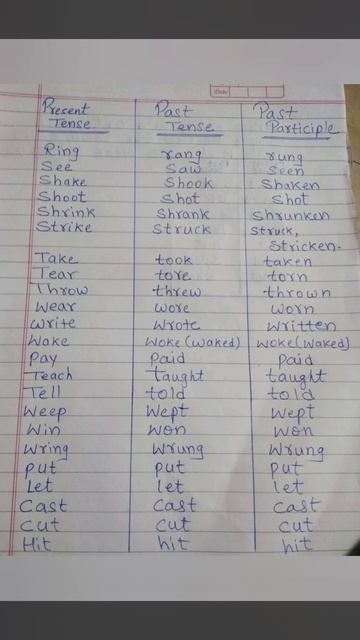 Date
Present Past Past
Tense Tense Participle
Ring rang rung
See saw seen
Shake Shook Shaken
Shoot Shot Shot
Shrink Shrank Shrunken
Strike Struck Struck,
Stricken.
Take took taken
Tear tore torn
Throw threw thrown
Wear wore worn
Write wrote written
Wake Woke (Waked) Woke (Waked)
Pay Paid Paid
Teach Taught taught
Tell told told
Weep Wept Wept
Win Won Won
Wring Wrung Wrung
Put put put
Let let let
Cast Cast Cast
Cut cut cut
Hit hit hit